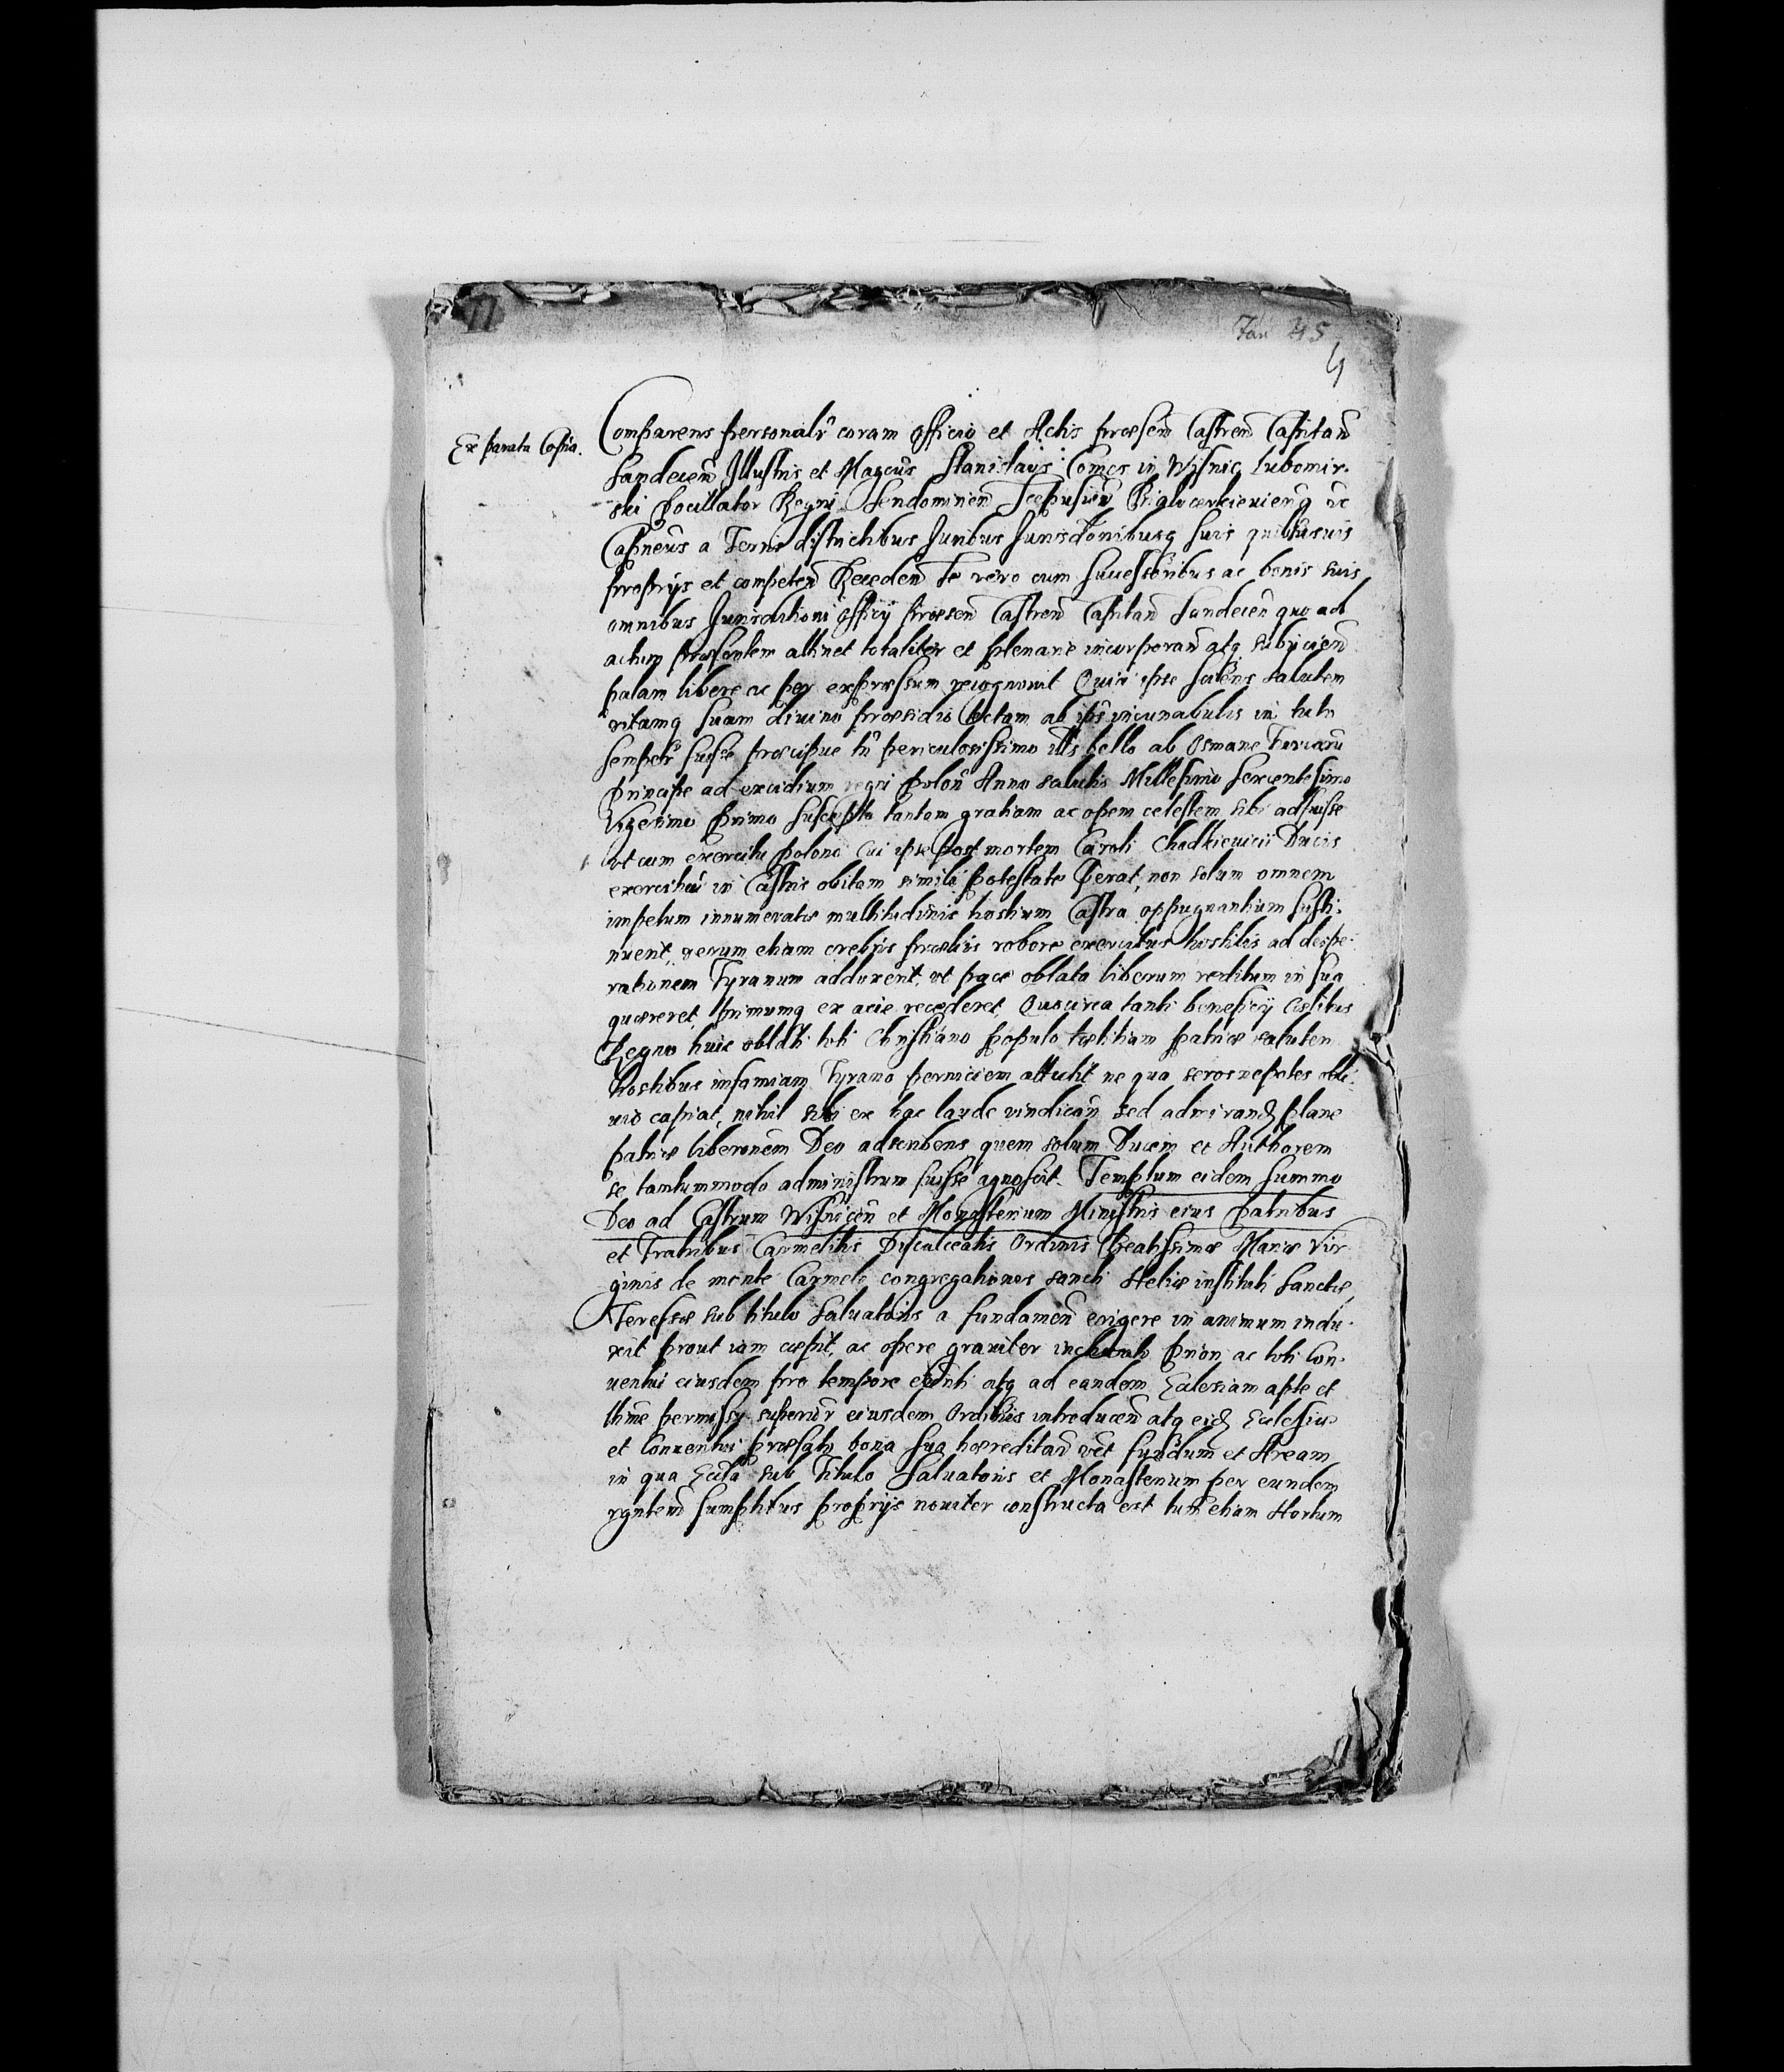 77
Fan 45
4
Ex parata Copia.
Comparens personalr̃ coram Officio et Actis præseñ Castreñ Capitañ
Sandeceñ Illustris et Magcũs Stanislaus Comes in Wisnic Lubomir-
ski Pocillator Regni Sendomirieñ Scepusieñ Bialocerkievieñq etc
Capneũs a Terris districtibus Juribus Jurisdõnibusq suis quibusuis
proprijs et competeñ Recedeñ Se vero cum successoribus ac bonis suis
omnibus Jurisdictioni Officij præseñ Castreñ Capitañ Sandeceñ quo ad
actum præsentem attinet totaliter et plenarie incorporañ atq subijcieñ
palam libere ac per expressum recognovit Quia ipse sciens salutem
vitamq suam divino præsidio tectam ab ipis incunabulis in tuto
semper fuisse præcipue tñ periculosissimo illo bello ab Osmane Turcarũ
Principe ad excidium regni Poloñ Anno salutis Millesimo sexcentesimo
Vigesimo Primo suscepto tantam gratiam ac opem celestem sibi adfuisse
vt cum exercitu Polono cui ipse post mortem Caroli Chodkievicii Ducis
exercituũ in Castris obitam simili potestate Perat, non solum omnem
impetum innumeratæ multitudinis hostium Castra oppugnantium susti-
nuerit, verum etiam crebris præliis robore exercitus hostilis ad despe-
rationem Tyranum adduxerit, vt pace oblata liberum reditum in sua
quæreret, primumq ex acie recederet, Quocirca tanti beneficij Cælitus
Regno huic obldti toti Christiano Populo lætitiam patriæ salutem
hostibus infamiam Tyrano perniciem attulit ne qua seros nepotes obli-
vio capiat, nihil sibi ex hac laude vindicañ sed admirandq plane
patriæ liberonẽm Deo adscribens quem solum Ducem et Authorem
se tantummodo administrum fuisse agnoscit. Templum eidem summo
Deo ad Castrum Wisniceñ et Monasterium Ministris eius Patribus
et Fratribus Carmelitis Discalceatis Ordinis Beatissimæ Mariæ Vir-
ginis de monte Carmelo congregationes sancti Heliæ instituti Sanctæ
Teressæ sub titulo Saluatoris a fundameñ erigere in animum indu-
xit prout iam cæpit, ac opere graviter inchoato Priori ac toti Con-
ventui eiusdem pro tempore exñti atq ad eandem Ecclesiam apte et
lhme permissu superior̃ eiusdem Ordinis introduceñ atq eidq Ecclesiæ
et Conventui præfato bona sua hæreditañ vẽt fundum et Aream
in qua Eccla sub Titulo Saluatoris et Monasterium per eundem
rgnteñ sumptibus proprijs noviter constructa est tum etiam Hortum